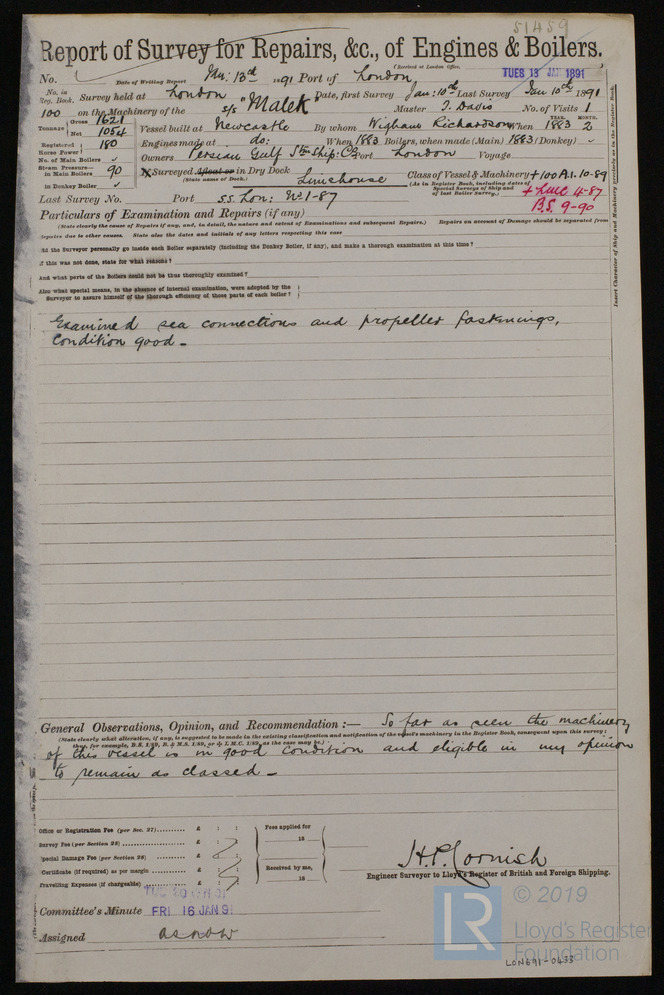 51459
Report of Survey for Repairs, &c., of Engines & Boilers.
(Received at London Office.
No. Date of Writing Report 13th 1891 Port of London TUES 13 JAN 1891
No. in Reg. Book. Survey held at London Date, first Survey Jan: 10th Last Survey Jan 10th 1891
100 on the Machinery of the s/s "Malek" Master J. Davis No. of Visits 1
Tonnage Gross 1621 Net 1054 Vessel built at Newcastle By whom Wigham Richardson When YEAR. 1883 MONTH. 2
Registered Horse Power 180 Engines made at do: When 1883 Boilers, when made (Main) 1883 (Donkey) "
No. of Main Boilers " Owners Persian Gulf Stm Ship: Co Port London Voyage
Steam Pressure— in Main Boilers 90 If Surveyed Afloat or in Dry Dock Limehouse Class of Vessel & Machinery +100A1. 10-89
(State name of Dock.) (As in Register Book, including dates of Special Surveys of Ship and of last Boiler Survey.) + LMC 4-87
in Donkey Boiler " B.S. 9-90
Last Survey No. Port s.s. Lon: No1-87
Particulars of Examination and Repairs (if any)
(State clearly the cause of Repairs if any, and, in detail, the nature and extent of Examinations and subsequent Repairs.) Repairs on account of Damage should be separated from
Repairs due to other causes. State also the dates and initials of any letters respecting this case
Did the Surveyor personally go inside each Boiler separately (including the Donkey Boiler, if any), and make a thorough examination at this time?
If this was not done, state for what reasons?
And what parts of the Boilers could not be thus thoroughly examined?
Also what special means, in the absence of internal examination, were adopted by the
Surveyor to assure himself of the thorough efficiency of those parts of each boiler?
Insert Character of Ship and Machinery precisely as in the Register Book.
Examined sea connections and propeller fastenings,
Condition good -
General Observations, Opinion, and Recommendation :— So far as seen the machinery
(State clearly what alteration, if any, is suggested to be made in the existing classification and notification of the vessel's machinery in the Register Book, consequent upon this survey;
thus, for example, B.S. 1/89, B. & M.S. 1/89, or L.M.C. 1/89, as the case may be.)
of this vessel is in good condition and eligible in my opinion
to remain as classed -
Office or Registration Fee (per Sec. 27).......... £ : :
Survey Fee (per Section 28).......... £ : :
Special Damage Fee (per Section 28).......... £ : :
Certificate (if required) as per margin.......... £ : :
Travelling Expenses (if chargeable).......... £ : :
Fees applied for
18
Received by me,
18
H.P. Cornish
Engineer Surveyor to Lloyd's Register of British and Foreign Shipping.
Committee's Minute FRI 16 JAN 91
Assigned as now
LR © 2019
Lloyd's Register
Foundation
LON691-0433